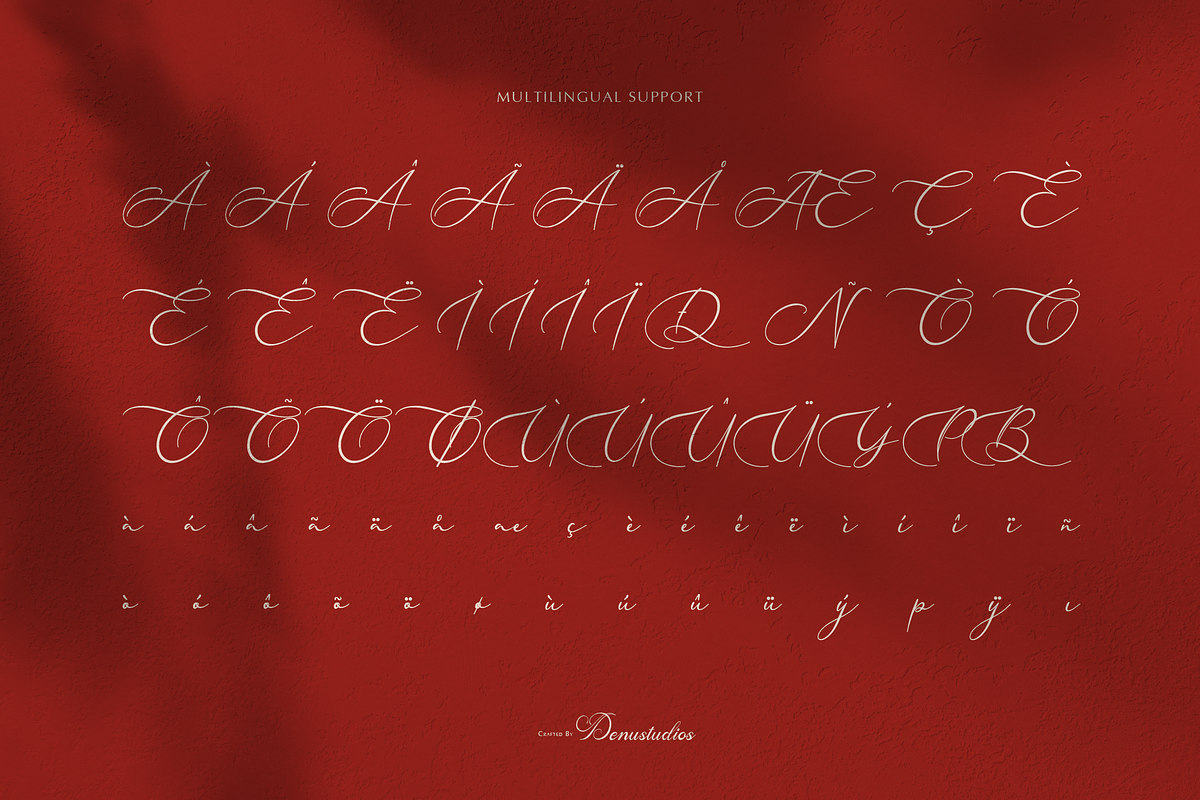 MULTILINGUAL SUPPORT
À Á Â Ã Ä Å Æ Ç È
É Ê Ë Ì Í Î Ï Ð Ñ Ò Ó
Ô Õ Ö Ø Ù Ú Û Ü Ý Þ ß
à á â ã ä å æ ç è é ê ë ì í î ï ñ
ò ó ô õ ö ø ù ú û ü ý þ ÿ ı
Crafted By Denustudios